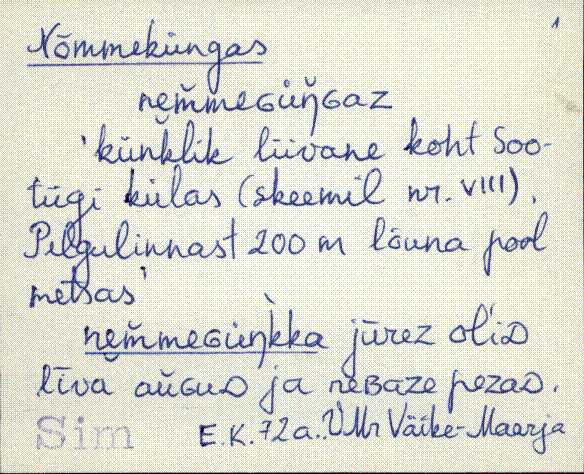 1
Nõmmeküngas
ne̮m̆meɢü̆ŋ̆ɢaz
'künklik liivane koht Soo-
tügi külas (skeemil nr. VIII),
Pelgulinnast 200 m lõuna pool
metsas'
ne̮m̆meɢüŋ̀kka jūrez oĺiᴅ
līva aŭɢuᴅ ja reʙaze pezaᴅ.
Sim E.K. 72 a. VMr Väike-Maarja